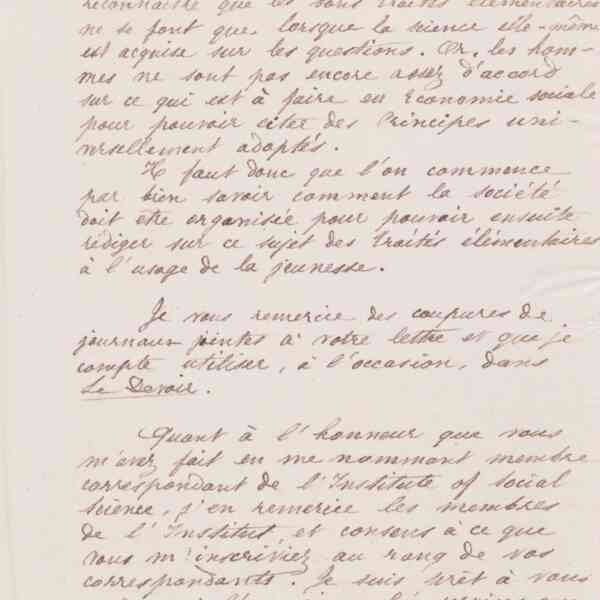 reconnaître que les bons traités élémentaires
ne se font que lorsque la science elle-même
est acquise sur les questions. Or, les hom-
mes ne sont pas encore assez d'accord
sur ce qui est à faire en Economie sociale
pour pouvoir citer des Principes uni-
versellement adoptés.
Il faut donc que l'on commence
par bien savoir comment la société
doit être organisée pour pouvoir ensuite
rédiger sur ce sujet des traités élémentaires
à l'usage de la jeunesse.
Je vous remercie des coupures de
journaux jointes à votre lettre et que je
compte utiliser, à l'occasion, dans
Le Devoir.
Quant à l'honneur que vous
m'avez fait en me nommant membre
correspondant de l'Institute of Social
Science, j'en remercie les membres
de l'Institut, et consens à ce que
vous m'inscriviez au rang de vos
correspondants. Je suis prêt à vous